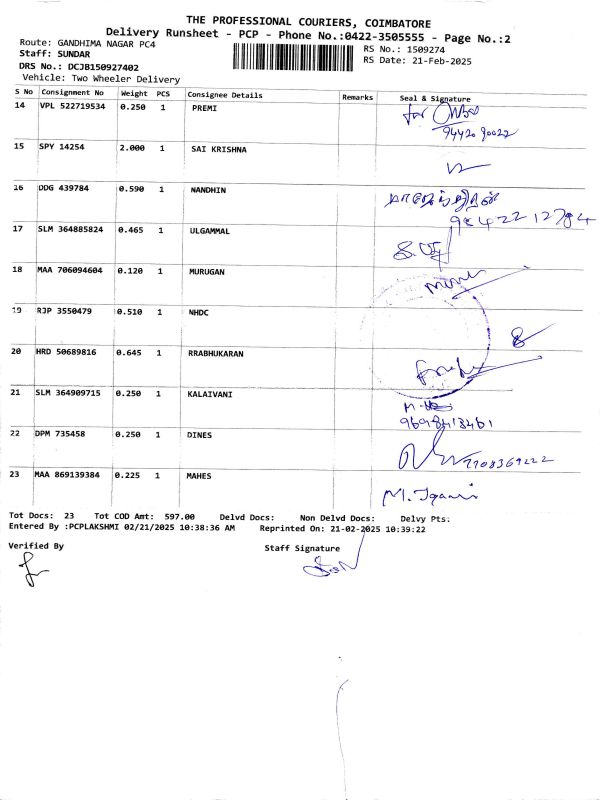 THE PROFESSIONAL COURIERS, COIMBATORE
Delivery Runsheet - PCP - Phone No.:0422-3505555 - Page No.:2
Route: GANDHIMA NAGAR PC4
RS No.: 1509274
Staff: SUNDAR
RS Date: 21-Feb-2025
DRS No.: DCJB150927402
Vehicle: Two Wheeler Delivery
S No Consignment No Weight PCS Consignee Details Remarks Seal & Signature
14 VPL 522719534 0.250 1 PREMI for
94420 90022
15 SPY 14254 2.000 1 SAI KRISHNA
16 DDG 439784 0.590 1 NANDHIN
98422 12784
17 SLM 364885824 0.465 1 ULGAMMAL
18 MAA 706094604 0.120 1 MURUGAN
19 RJP 3550479 0.510 1 NHDC
20 HRD 50689816 0.645 1 RRABHUKARAN
21 SLM 364909715 0.250 1 KALAIVANI
9698413461
22 DPM 735458 0.250 1 DINES
7708369222
23 MAA 869139384 0.225 1 MAHES
Tot Docs: 23 Tot COD Amt: 597.00 Delvd Docs: Non Delvd Docs: Delvy Pts:
Entered By :PCPLAKSHMI 02/21/2025 10:38:36 AM Reprinted On: 21-02-2025 10:39:22
Verified By
Staff Signature